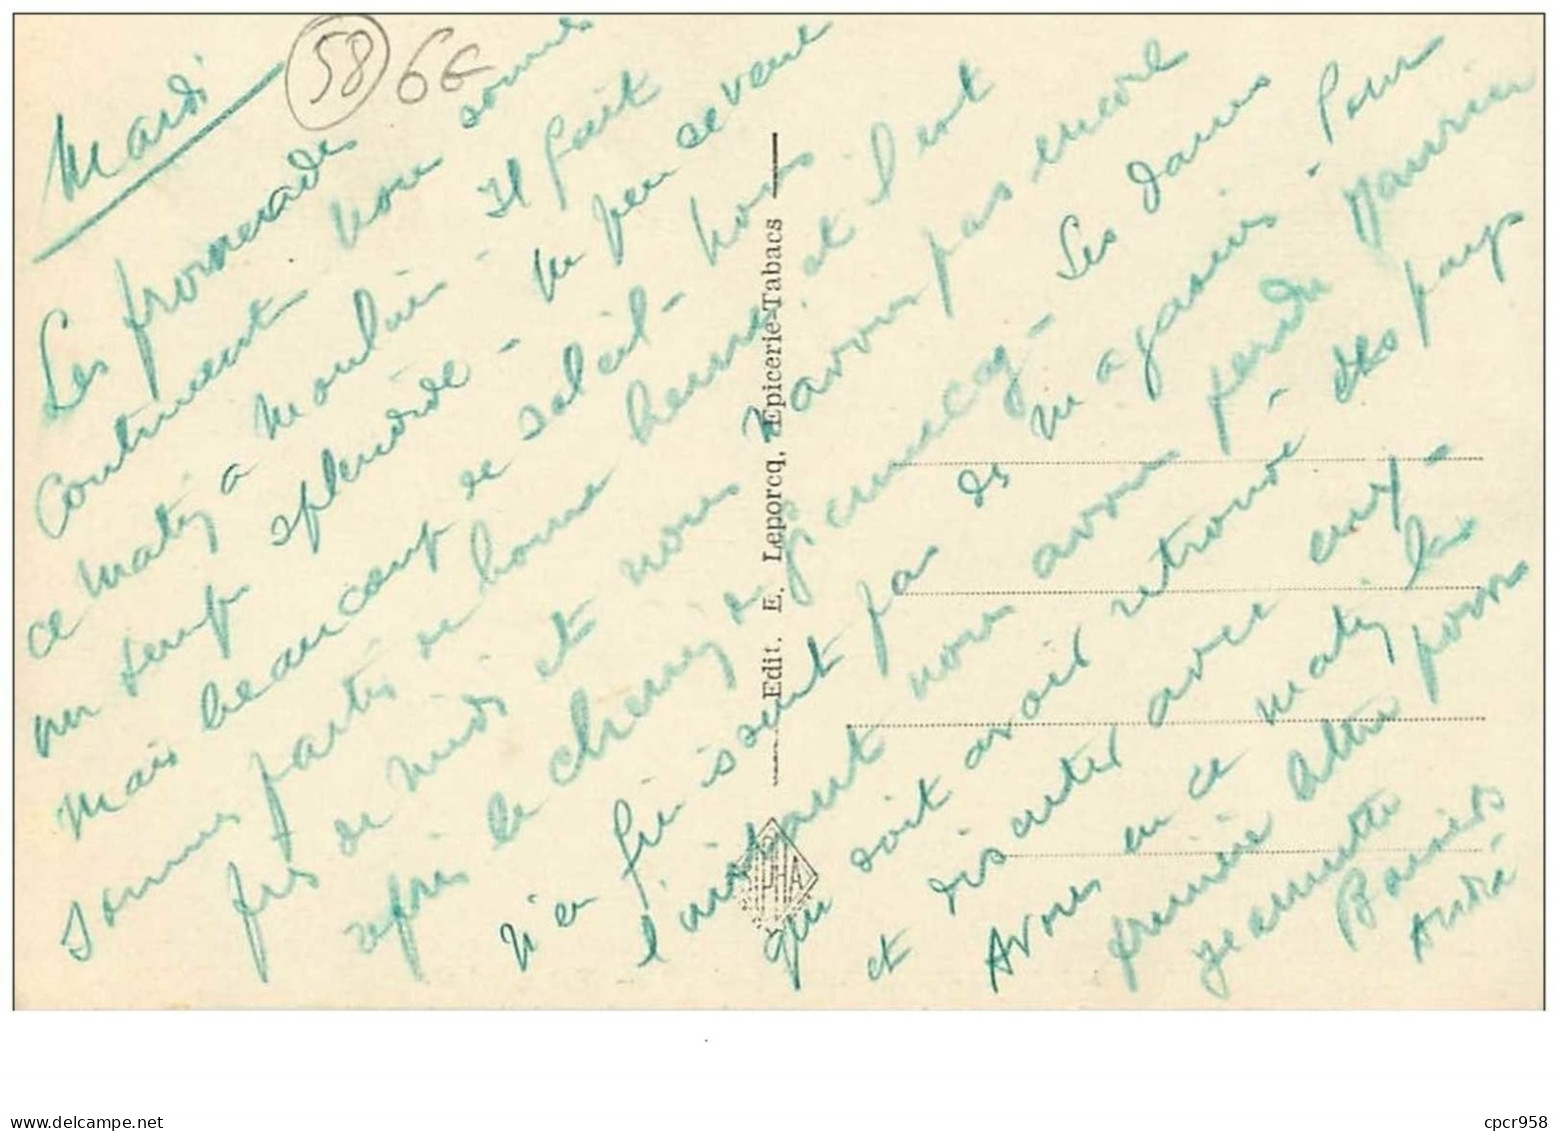 58 6€
Mardi
Les promenades
continuent nous sommes
ce matin à Moulin - Il fait
un temps splendide - un peu de vent
mais beaucoup de soleil - nous
sommes partis de bonne heure et l'est
près de midi et nous n'avons pas encore
pris le chemin de - Ses Dames
n'en finissent pas de magasins - Pour
l'instant nous avons perdu Maurice
qui doit avoir retrouvé des pays
et discuter avec eux -
Avons eu ce matin la
première lettre pour
Jeannette
Baisers
André
Edit. E. Leporcq, Epicerie-Tabacs
cpcr958
www.delcampe.net